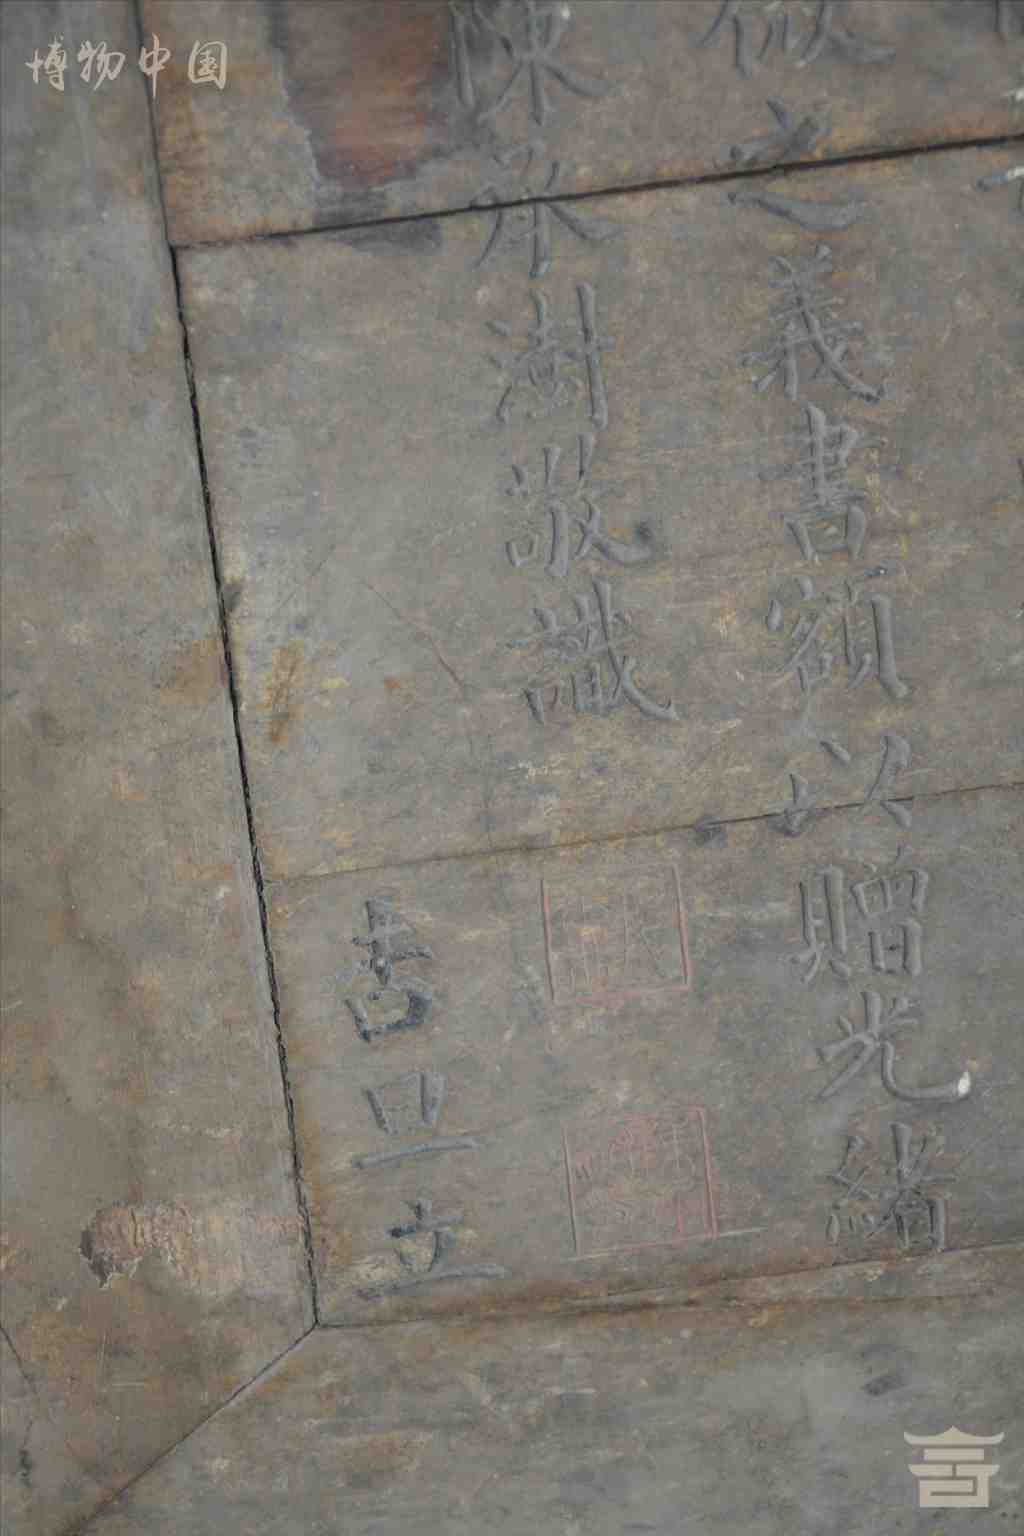 博物中国
之義書額以贈光緒
陳承澍敬識
吉旦立